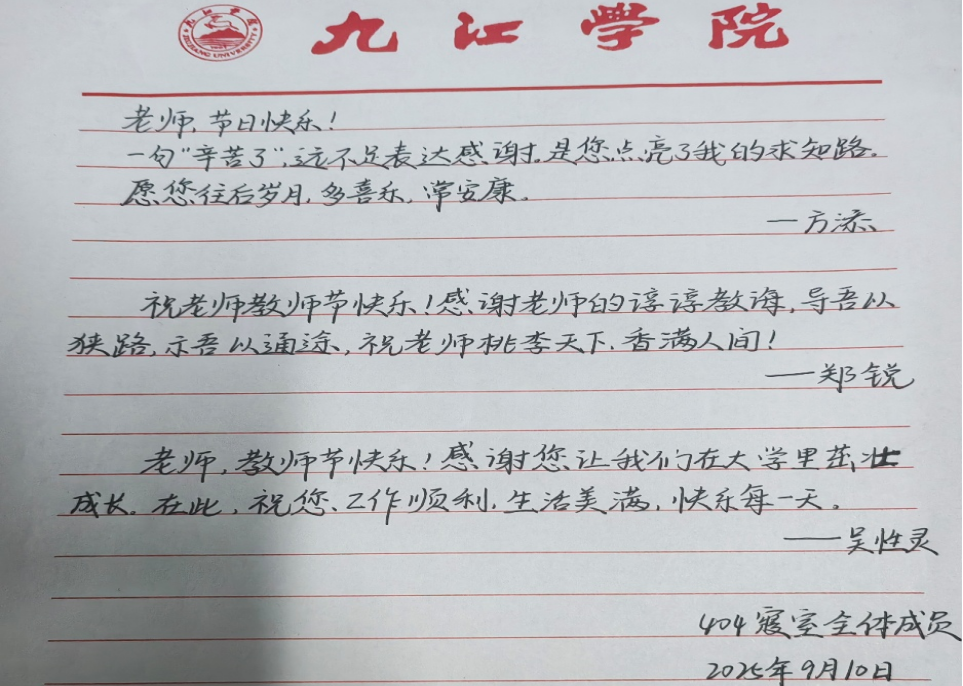 九江学院
JIUJIANG UNIVERSITY
老师,节日快乐!
一句"辛苦了",远不足表达感谢。是您点亮了我的求知路。
愿您往后岁月,多喜乐,常安康。
—方添
祝老师教师节快乐!感谢老师的谆谆教诲,导吾以
狭路,示吾以通途,祝老师桃李天下,香满人间!
——郑锐
老师,教师节快乐!感谢您让我们在大学里茁壮
成长。在此,祝您、工作顺利,生活美满,快乐每一天。
——吴性灵
404寝室全体成员
2025年9月10日